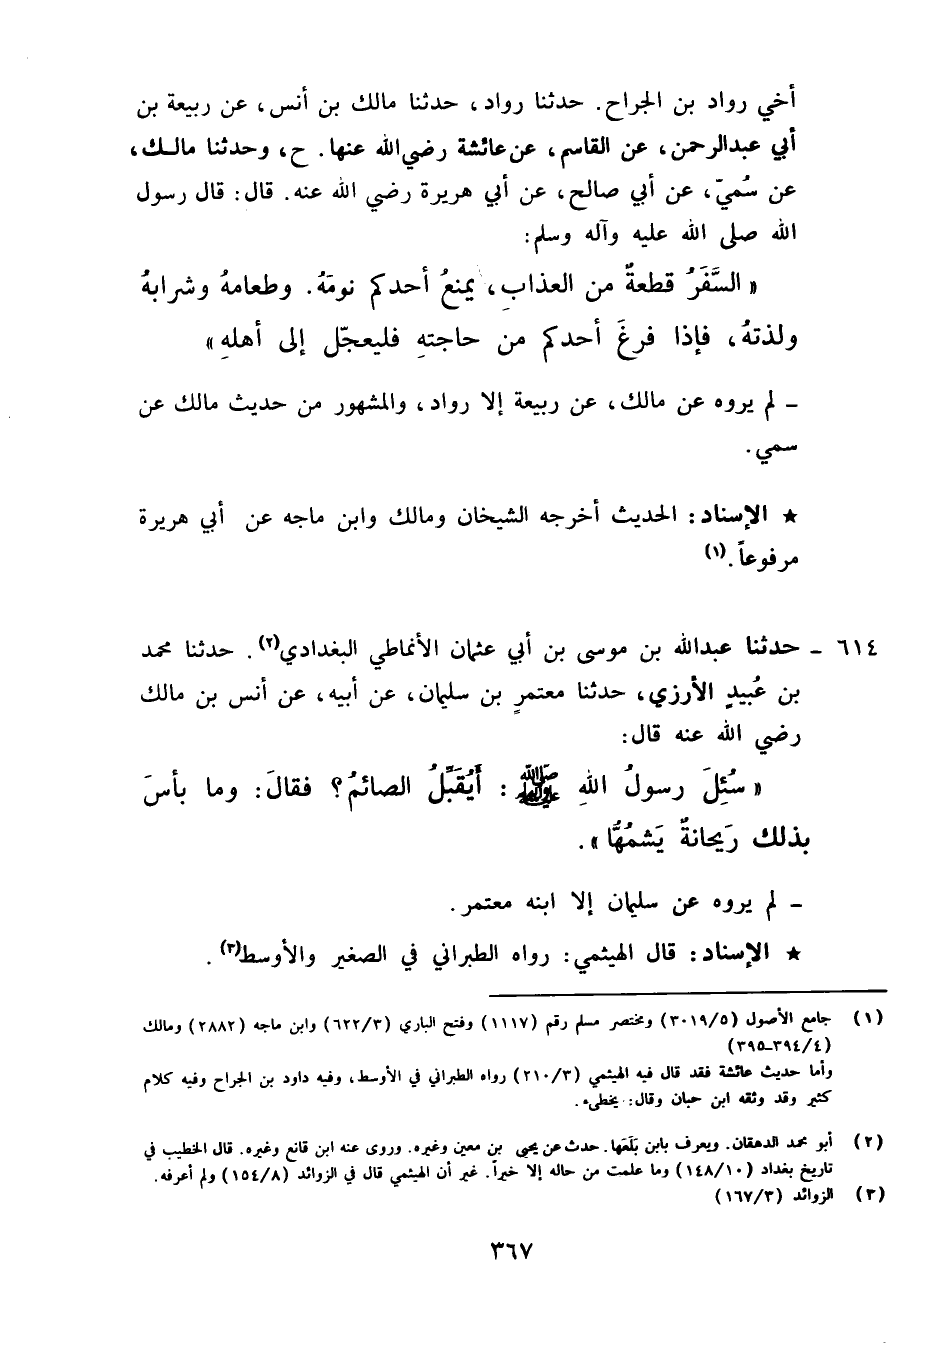 أخي رواد بن الجراح. حدثنا رواد، حدثنا مالك بن أنس، عن ربيعة بن
أبي عبدالرحمن، عن القاسم، عن عائشة رضي الله عنها. ح، وحدثنا مالك،
عن سُميّ، عن أبي صالح، عن أبي هريرة رضي الله عنه. قال: قال رسول
الله صلى الله عليه وآله وسلم:
« السَّفَرُ قطعةٌ من العذابِ، يمنعُ أحدكم نومَهُ. وطعامهُ وشرابهُ
ولذتهُ، فإذا فرغَ أحدكم من حاجتهِ فليعجّل إلى أهلهِ »
ـ لم يروه عن مالك، عن ربيعة إلا رواد، والمشهور من حديث مالك عن
سمي.
★ الإسناد: الحديث أخرجه الشيخان ومالك وابن ماجه عن أبي هريرة
مرفوعاً.(١)
٦١٤ ـ حدثنا عبدالله بن موسى بن أبي عثمان الأنماطي البغدادي(٢). حدثنا محمد
بن عُبيدٍ الأرزي، حدثنا معتمرٍ بن سليمان، عن أبيه، عن أنس بن مالك
رضي الله عنه قال:
« سُئِلَ رسولُ اللهِ ﷺ : أَيُقَبِّلُ الصائمُ؟ فقالَ: وما بأسَ
بذلك رَيحانةٌ يَشمُهَّا ».
ـ لم يروه عن سليمان إلا ابنه معتمر.
★ الإسناد: قال الهيثمي: رواه الطبراني في الصغير والأوسط(٣).
(١) جامع الأصول (٣٠١٩/٥) ومختصر مسلم رقم (١١١٧) وفتح الباري (٦٢٢/٣) وابن ماجه (٢٨٨٢) ومالك
(٣٩٤/٤ـ٣٩٥)
وأما حديث عائشة فقد قال فيه الهيثمي (٢١٠/٣) رواه الطبراني في الأوسط، وفيه داود بن الجراح وفيه كلام
كثير وقد وثقه ابن حبان وقال: يخطىء.
(٢) أبو محمد الدهقان. ويعرف بابن بَلْعَها. حدث عن يحيى بن معين وغيره. وروى عنه ابن قانع وغيره. قال الخطيب في
تاريخ بغداد (١٤٨/١٠) وما علمت من حاله إلا خيراً. غير أن الهيثمي قال في الزوائد (١٥٤/٨) ولم أعرفه.
(٣) الزوائد (١٦٧/٣)
٣٦٧